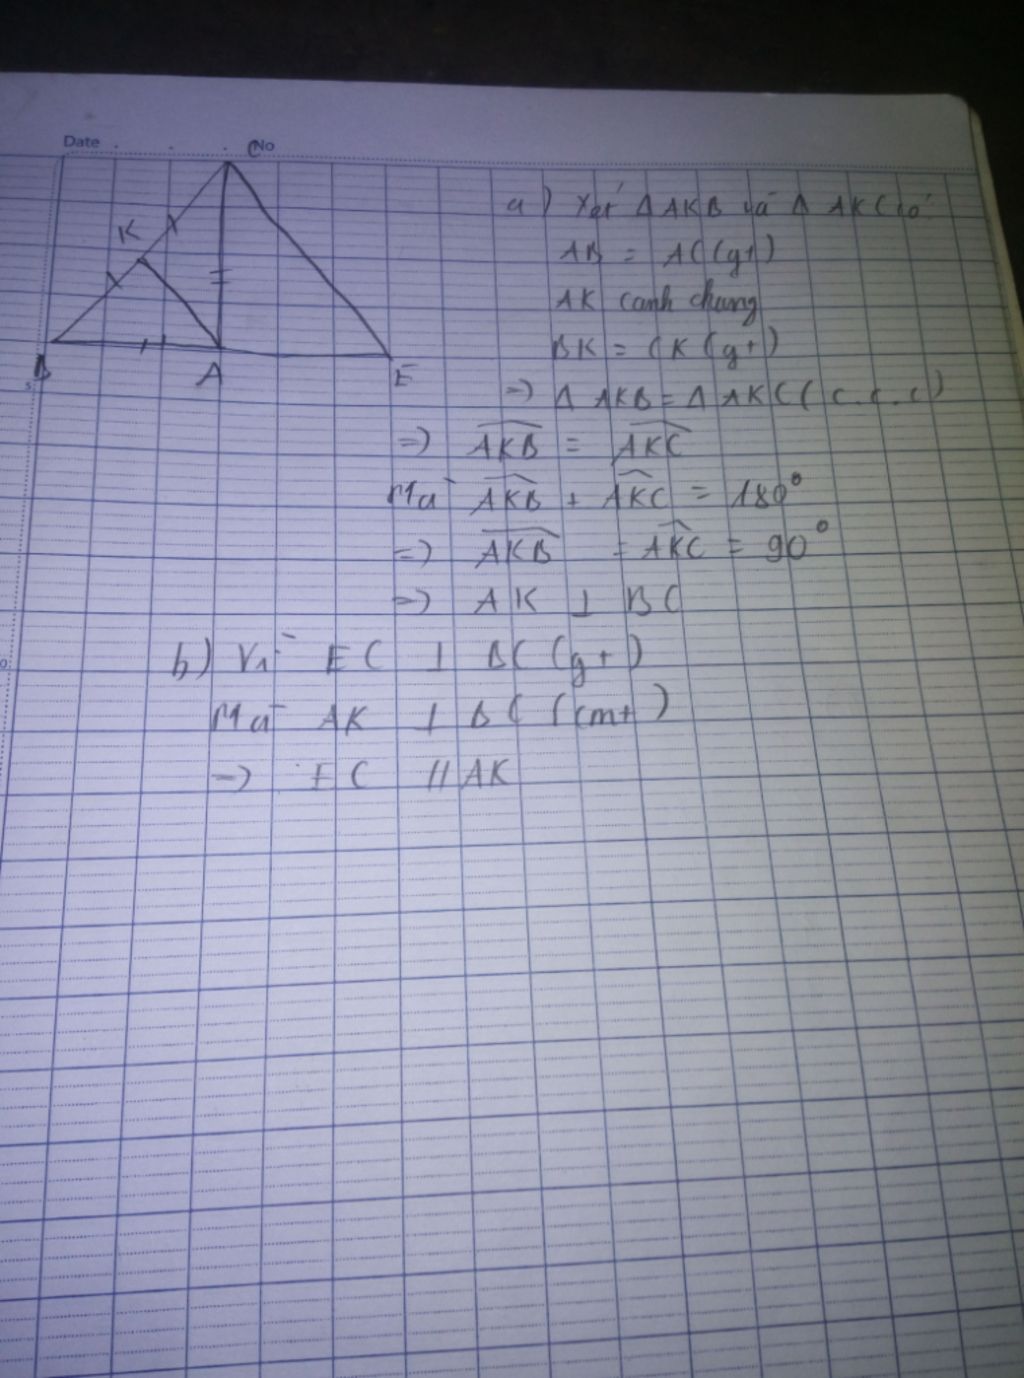 Date No
C
K
B A E
a) Xét Δ AKB và Δ AKC có:
AB = AC (gt)
AK cạnh chung
BK = CK (gt)
=> Δ AKB = Δ AKC (c.c.c)
=> AKB = AKC
Mà AKB + AKC = 180°
=> AKB = AKC = 90°
=> AK ⊥ BC
b) Vì EC ⊥ BC (gt)
Mà AK ⊥ BC (cmt)
=> EC // AK